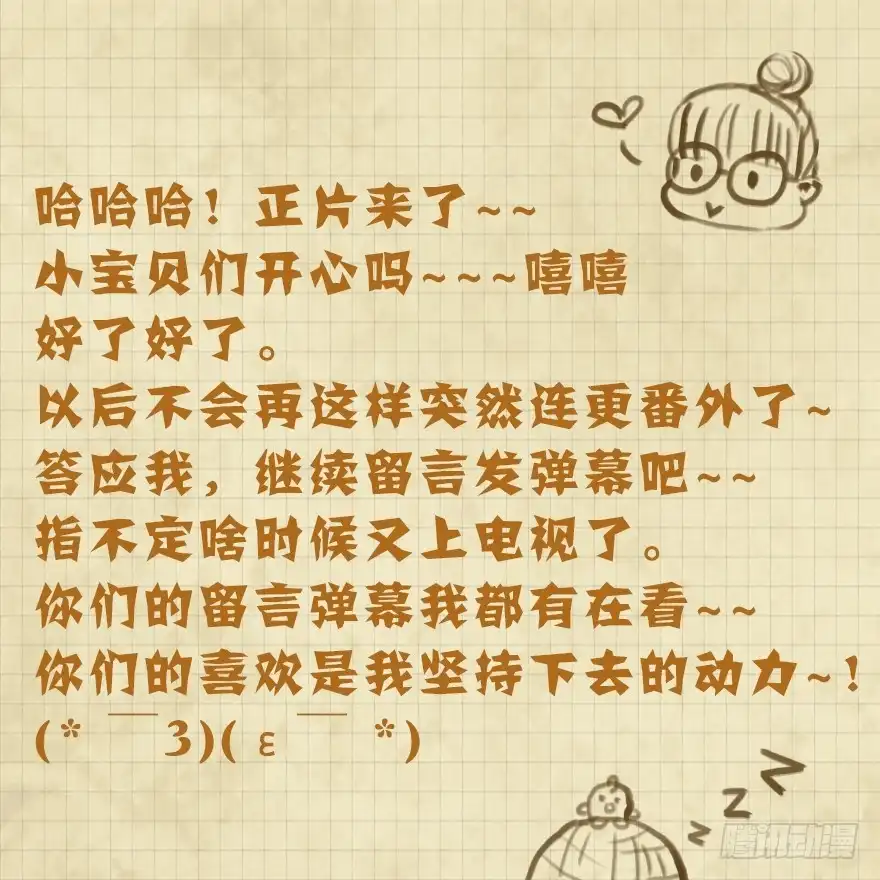 哈哈哈！正片来了~~
小宝贝们开心吗~~~嘻嘻
好了好了。
以后不会再这样突然连更番外了~
答应我，继续留言发弹幕吧~~
指不定啥时候又上电视了。
你们的留言弹幕我都有在看~~
你们的喜欢是我坚持下去的动力~！
(*￣3)(ε￣*)
z z z
腾讯动漫